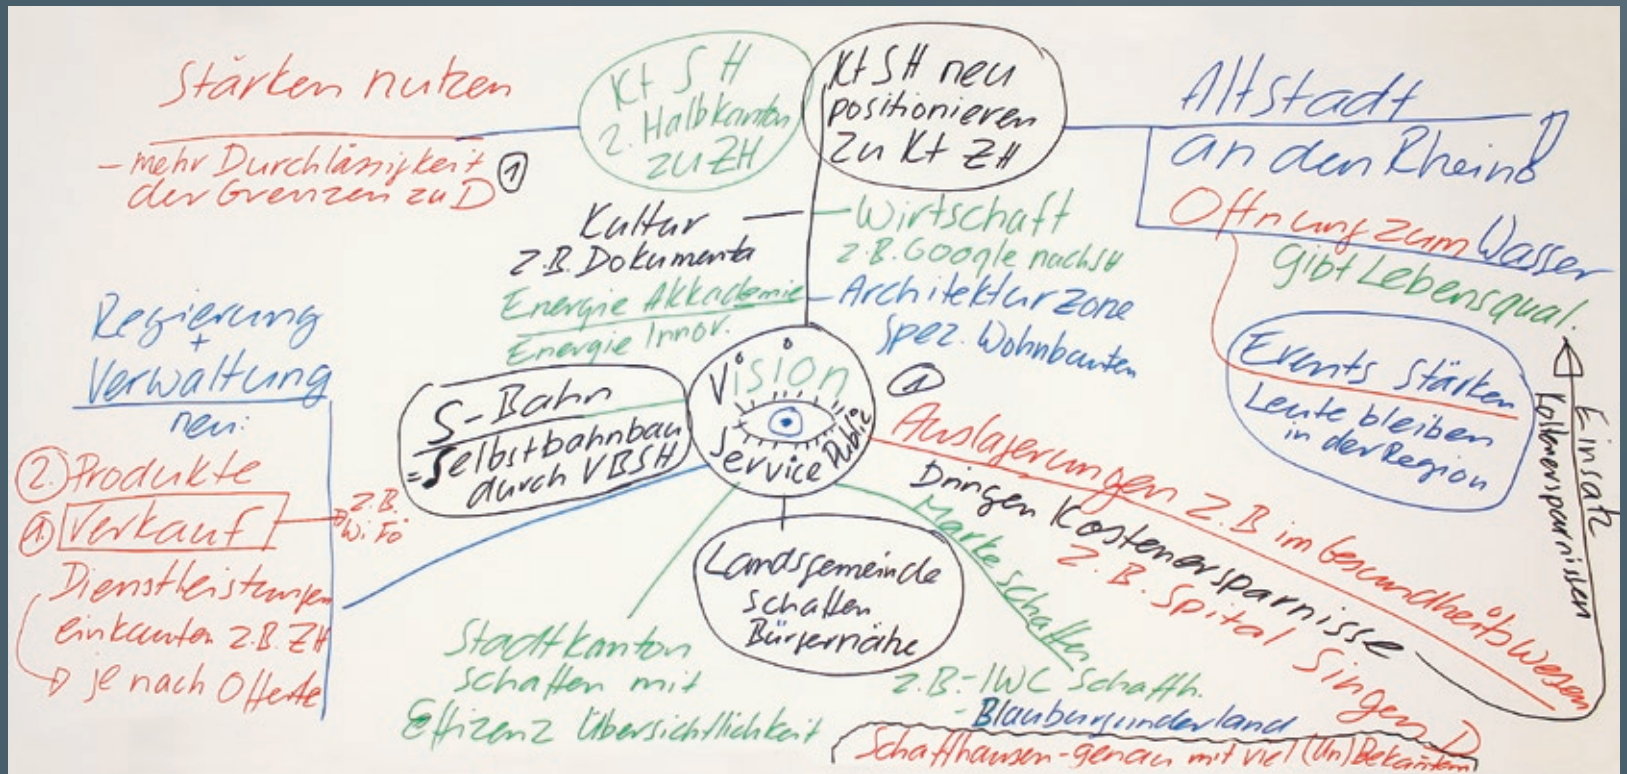 Stärken nutzen
- mehr Durchlässigkeit
der Grenzen zu D
1
Kt SH
2. Halbkanton
zu ZH
Kt SH neu
positionieren
zu Kt ZH
Altstadt
an den Rhein
Öffnung zum Wasser
gibt Lebensqual.
Events stärken
Leute bleiben
in der Region
Kultur
z.B. Dokumenta
Energie Akkademie
Energie Innov.
Wirtschaft
z.B. Google nach SH
Architekturzone
spez. Wohnbauten
Regierung
+
Verwaltung
neu:
2. Produkte
1. Verkauf
z.B.
Wi Fö
Dienstleistungen
einkaufen z.B. ZH
je nach Offerte
S-Bahn
= Selbstbahnbau
durch VBSH
Vision
Service Public
1
Auslagerungen z.B im Gesundheitswesen
Dringen Kostenersparnisse
z.B. Spital Singen D
Einsatz
Kostenersparnissen
Marke schaffen
z.B. - IWC Schaffh.
- Blauburgunderland
Schaffhausen - genau mit viel (Un)Bekanntem
Landsgemeinde
schaffen
Bürgernähe
Stadtkanton
schaffen mit
Effizenz Übersichtlichkeit